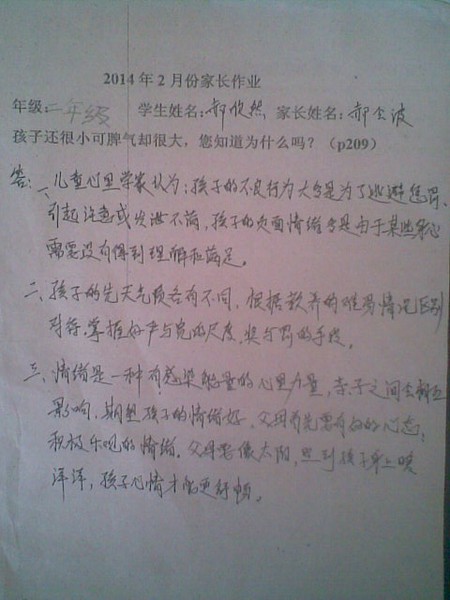 2014年2月份家长作业
年级:二年级 学生姓名:郝欣然 家长姓名:郝会波
孩子还很小可脾气却很大，您知道为什么吗？（p209）
答:一、儿童心里学家认为:孩子的不良行为大多是为了逃避惩罚、
引起注意或发泄不满，孩子的负面情绪多是由于某些心
需要没有得到理解和满足。
二、孩子的先天气质各有不同，根据教养的难易情况区别
对待，掌握好严与宽的尺度，奖与罚的手段。
三、情绪是一种有感染能量的心里力量，亲子之间会相互
影响，期望孩子的情绪好，父母首先要有好的心态，
积极乐观的情绪。父母要像太阳，照到孩子身上暖
洋洋，孩子心情才能更舒畅。